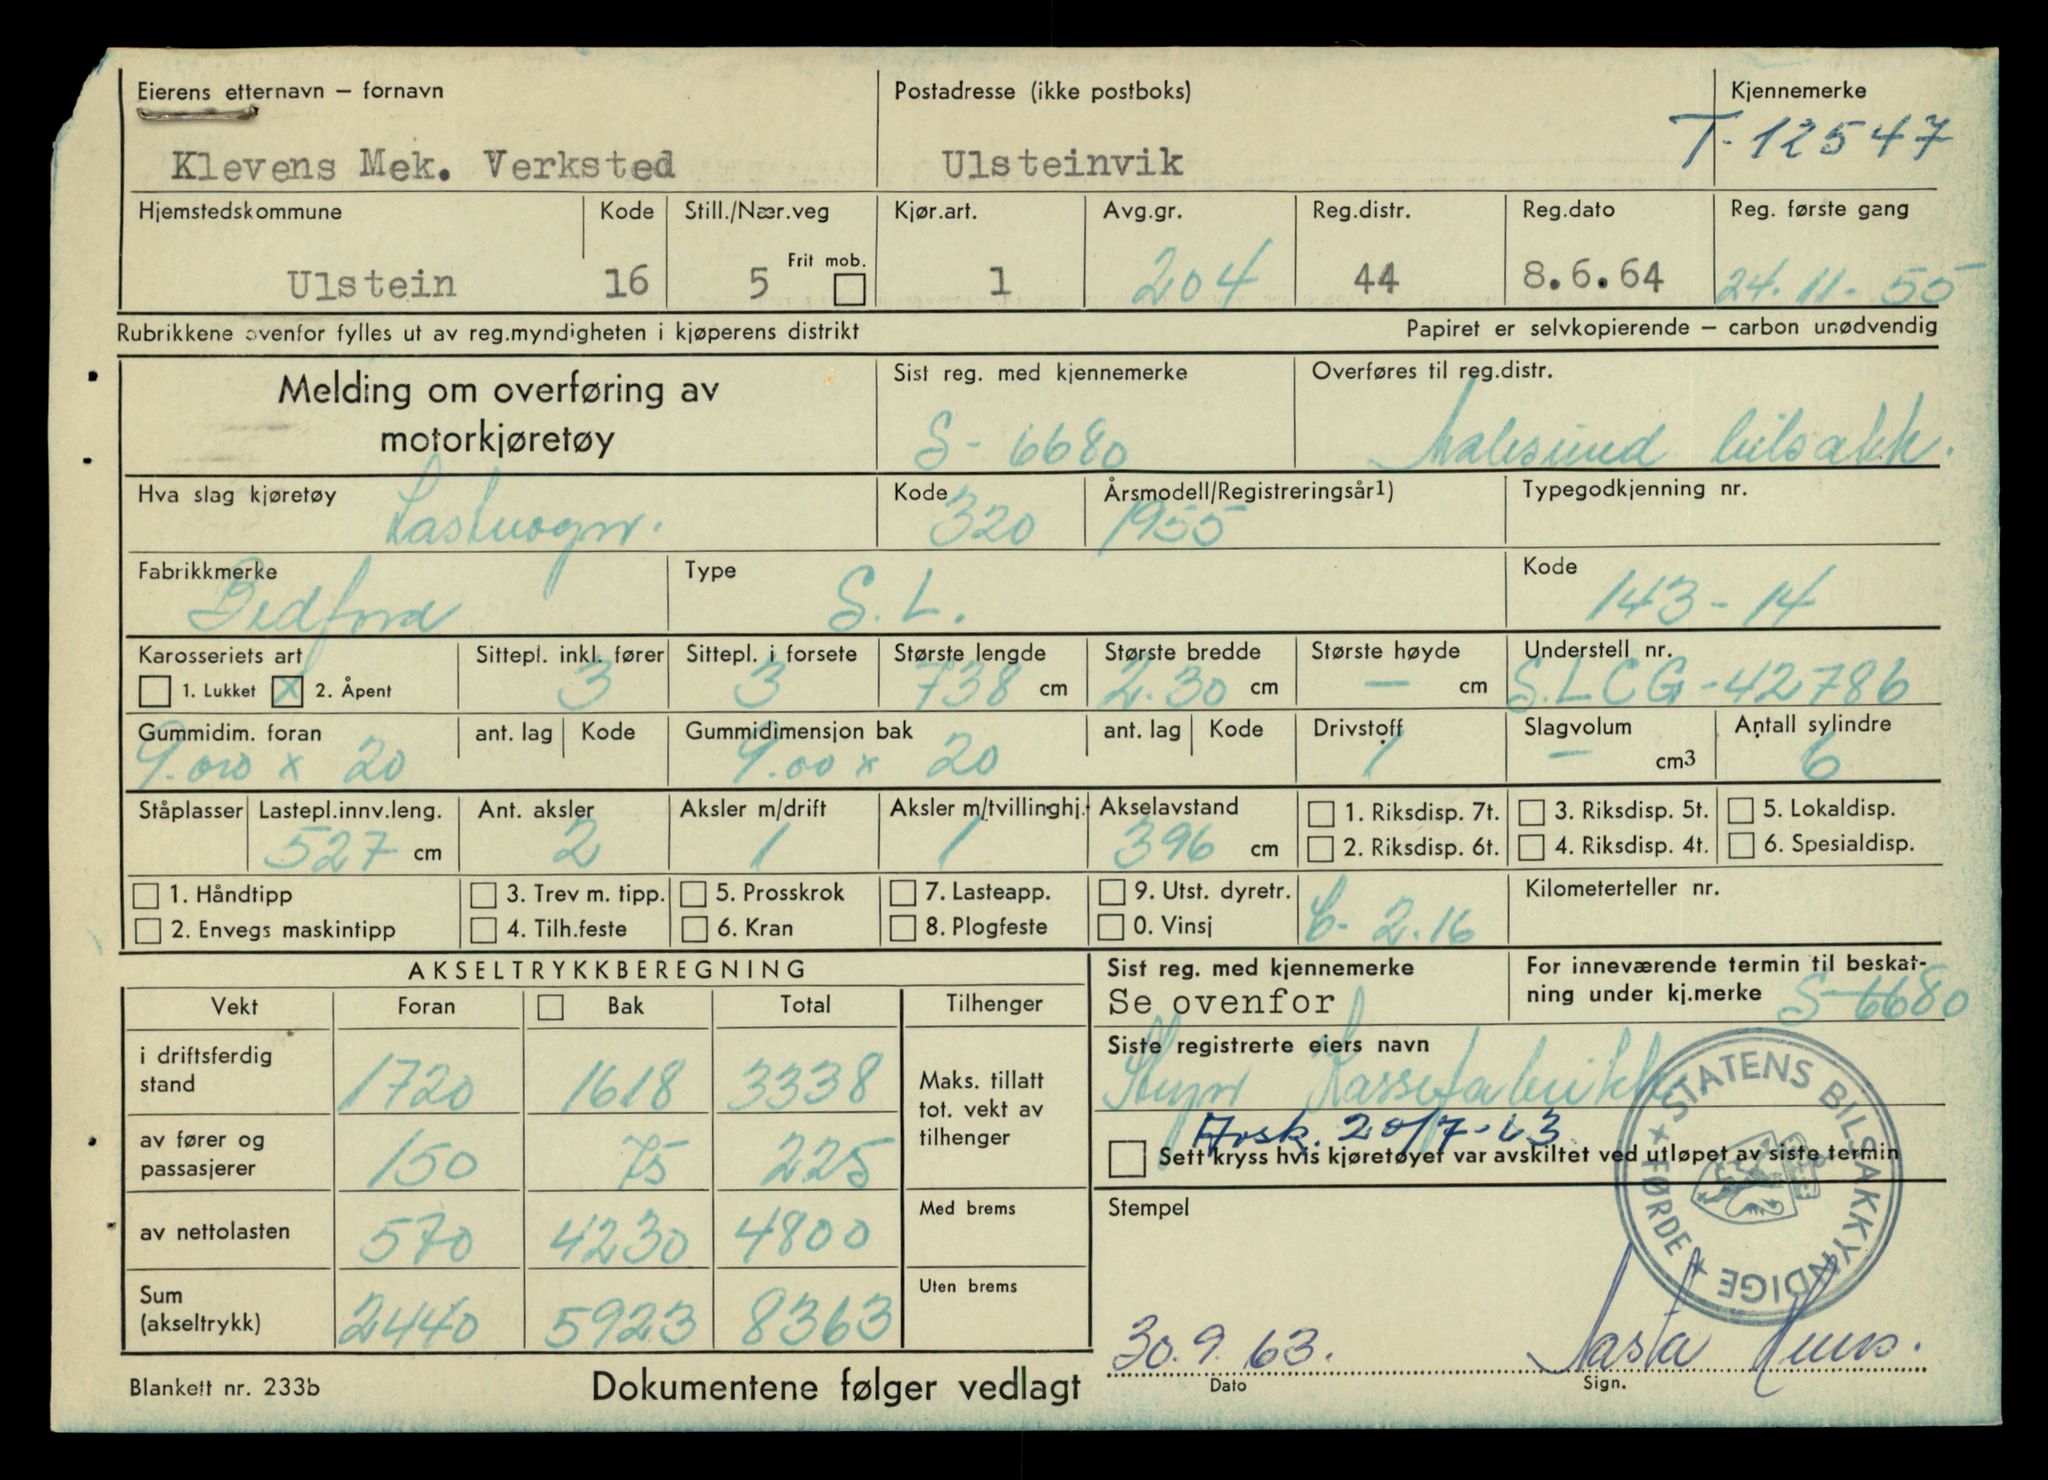 Eierens etternavn – fornavn
Postadresse (ikke postboks)
Kjennemerke
Klevens Mek. Verksted
Ulsteinvik
T-12547
Hjemstedskommune
Kode
Still./Nær.veg
Kjør.art.
Avg.gr.
Reg.distr.
Reg.dato
Reg. første gang
Frit mob.
Ulstein
16
5
1
204
44
8.6.64
24.11-55
Rubrikkene ovenfor fylles ut av reg.myndigheten i kjøperens distrikt
Papiret er selvkopierende – carbon unødvendig
Melding om overføring av
motorkjøretøy
Sist reg. med kjennemerke
S-6680
Overføres til reg.distr.
Aalesund bilsakk.
Hva slag kjøretøy
Lastvogn.
Kode
320
Årsmodell/Registreringsår1)
1955
Typegodkjenning nr.
Fabrikkmerke
Bedford
Type
S.L.
Kode
143-14
Karosseriets art
1. Lukket
x 2. Åpent
Sittepl. inkl. fører
3
Sittepl. i forsete
3
Største lengde
738 cm
Største bredde
2.30 cm
Største høyde
— cm
Understell nr.
S.L C G-42786
Gummidim. foran
9.00 x 20
ant. lag
Kode
Gummidimensjon bak
9.00 x 20
ant. lag
Kode
Drivstoff
1
Slagvolum
— cm3
Antall sylindre
6
Ståplasser
Lastepl.innv.leng.
527 cm
Ant. aksler
2
Aksler m/drift
1
Aksler m/tvillinghj.
1
Akselavstand
396 cm
1. Riksdisp. 7t.
2. Riksdisp. 6t.
3. Riksdisp. 5t.
4. Riksdisp. 4t.
5. Lokaldisp.
6. Spesialdisp.
1. Håndtipp
2. Envegs maskintipp
3. Trev m. tipp.
4. Tilh.feste
5. Prosskrok
6. Kran
7. Lasteapp.
8. Plogfeste
9. Utst. dyretr.
0. Vinsj
2.16
Kilometerteller nr.
AKSELTRYKKBEREGNING
Vekt
Foran
Bak
Total
Tilhenger
i driftsferdig
stand
1720
1618
3338
Maks. tillatt
tot. vekt av
tilhenger
av fører og
passasjerer
150
75
225
av nettolasten
570
4230
4800
Med brems
Sum
(akseltrykk)
2440
5923
8363
Uten brems
Sist reg. med kjennemerke
Se ovenfor
For inneværende termin til beskat-
ning under kj.merke
S-6680
Siste registrerte eiers navn
Kassefabrikk
Avsk. 20/7-63
Sett kryss hvis kjøretøyet var avskiltet ved utløpet av siste termin
Stempel
STATENS BILSAKKYNDIGE
FØRDE
30.9.63.
Dato
Sign.
Blankett nr. 233b
Dokumentene følger vedlagt